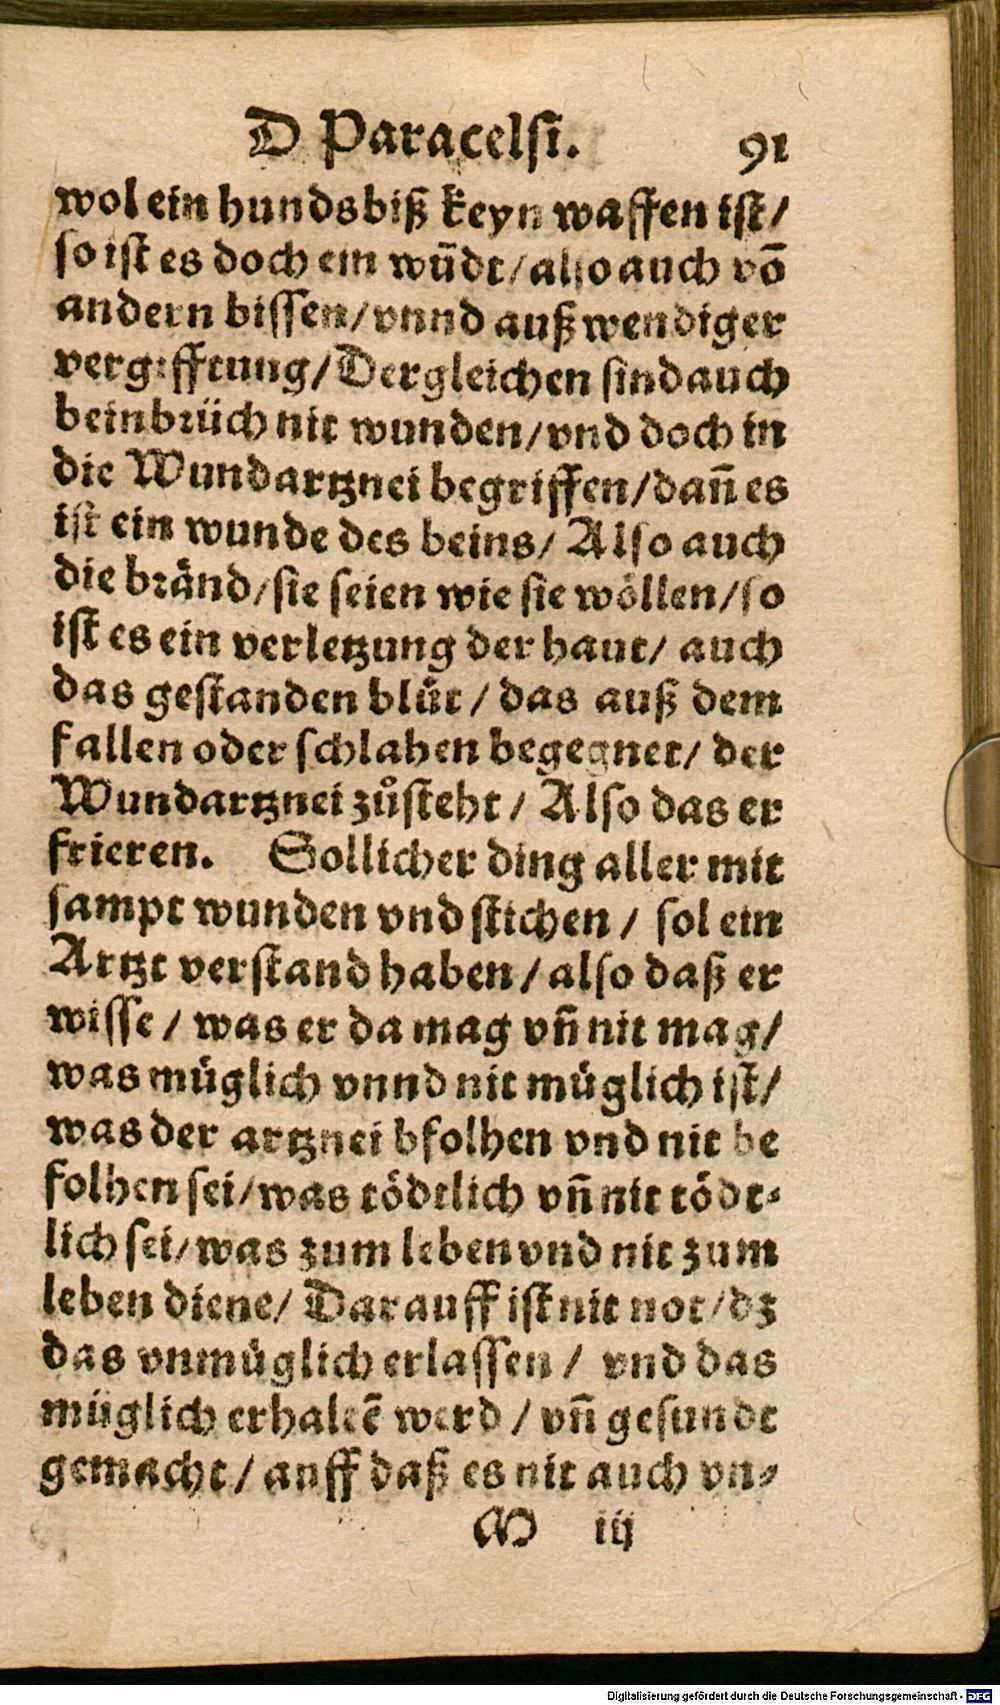 D Paracelsi. 91
wol ein hundsbiß keyn waffen ist/
so ist es doch ein wũdt/also auch võ
andern bissen/vnnd außwendiger
vergifftung/Dergleichen sind auch
beinbrüch nit wunden/vnd doch in
die Wundartznei begriffen/dañ es
ist ein wunde des beins/Also auch
die bränd/sie seien wie sie wöllen/so
ist es ein verletzung der haut/auch
das gestanden blůt/das auß dem
fallen oder schlahen begegnet/der
Wundartznei zůsteht/Also das er
frieren. Sollicher ding aller mit
sampt wunden vnd stichen/sol ein
Artzt verstand haben/also daß er
wisse/was er da mag vñ nit mag/
was müglich vnnd nit müglich ist/
was der artznei bfolhen vnd nit be
folhen sei/was tödtlich vñ nit tödt-
lich sei/was zum leben vnd nit zum
leben diene/Darauff ist nit not/dz
das vnmüglich erlassen/vnd das
müglich erhaltẽ werd/vñ gesundt
gemacht/auff daß es nit auch vn-
M iij
Digitalisierung gefördert durch die Deutsche Forschungsgemeinschaft - DFG